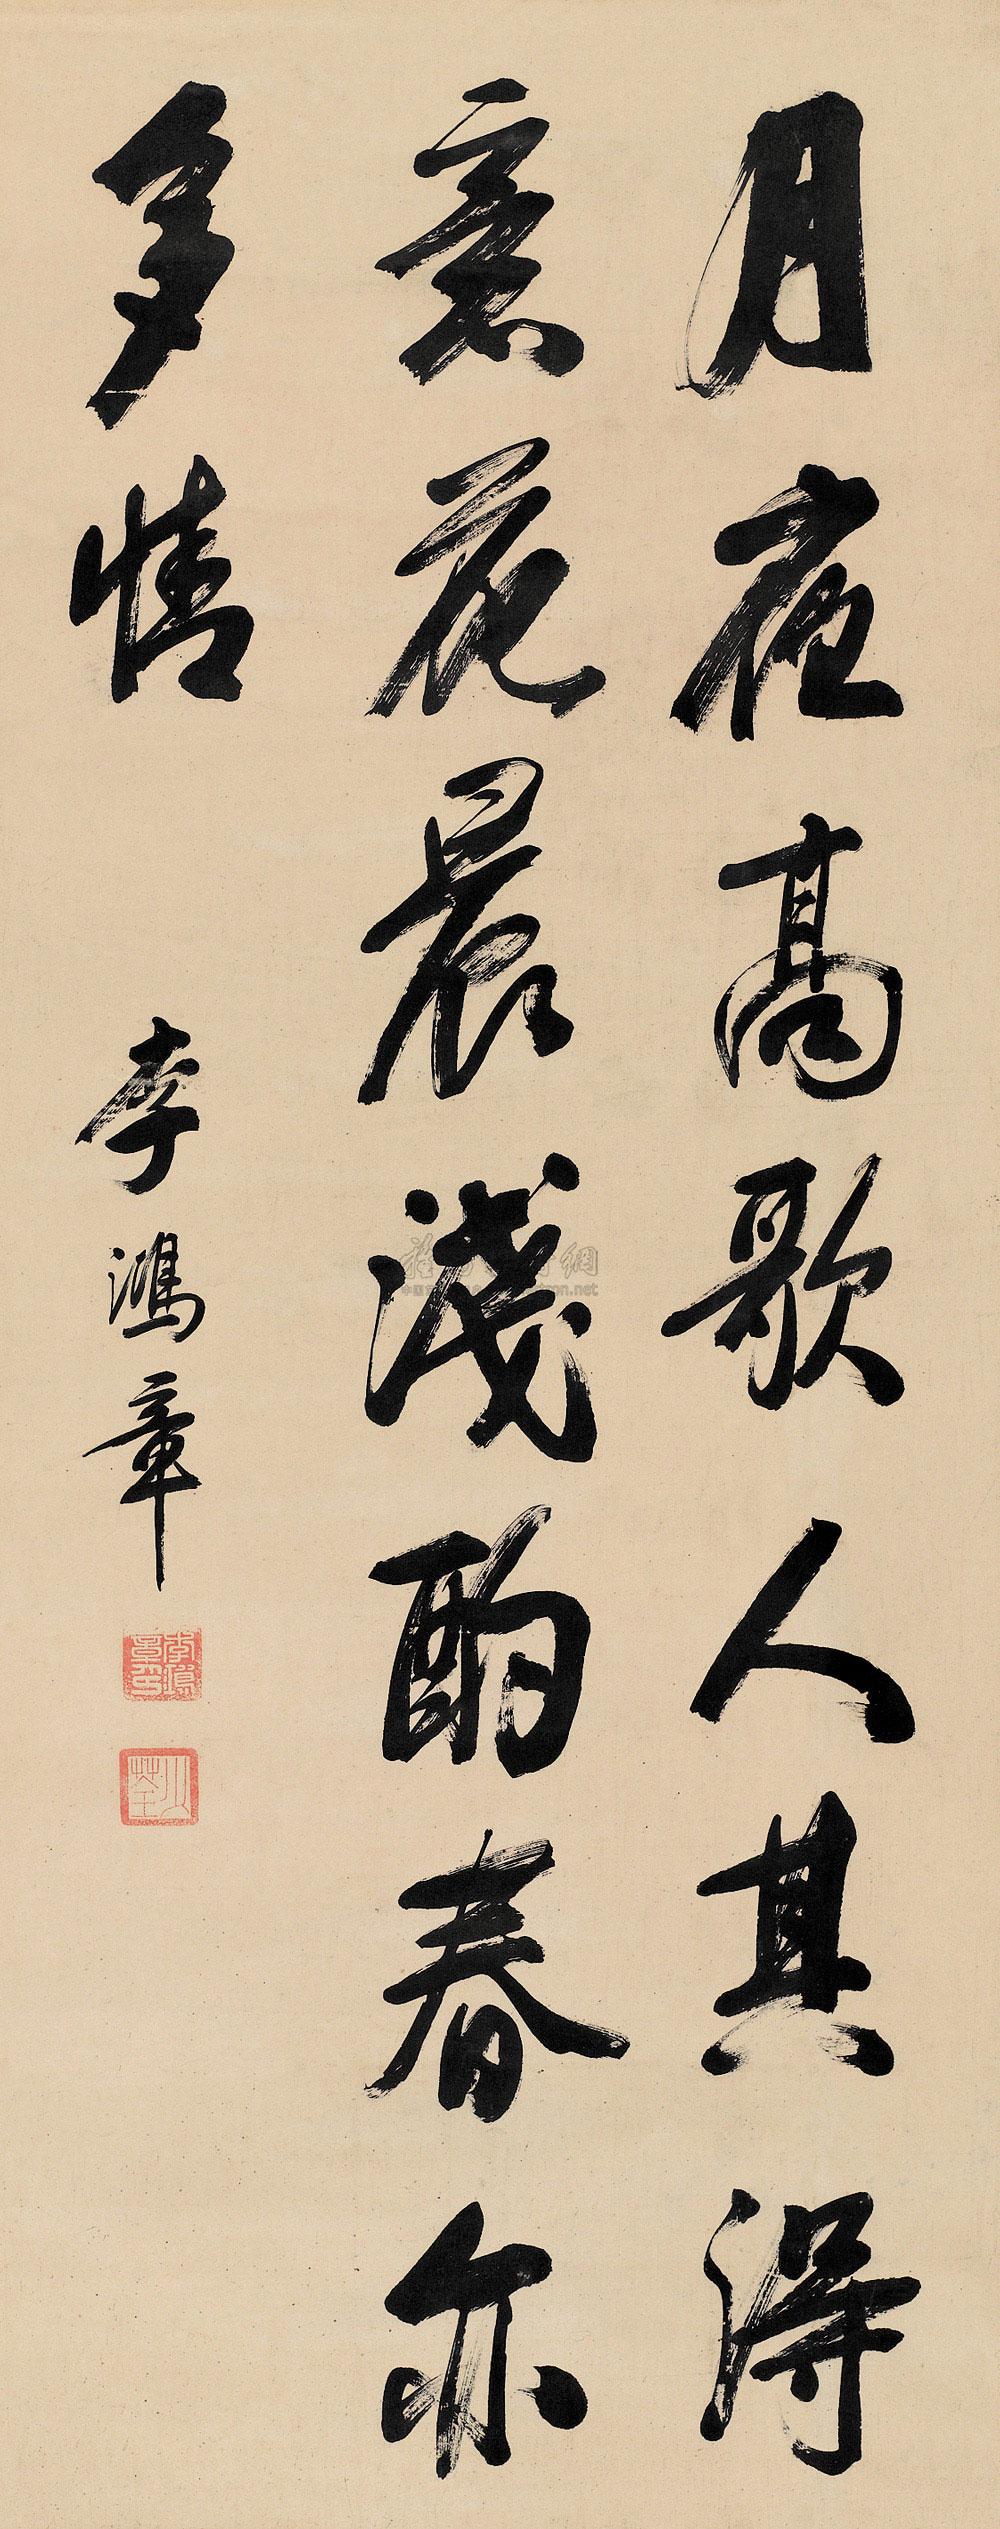 月夜高歌人其得
意花晨淺酌春亦
多情
李鴻章
李鴻章印
少荃